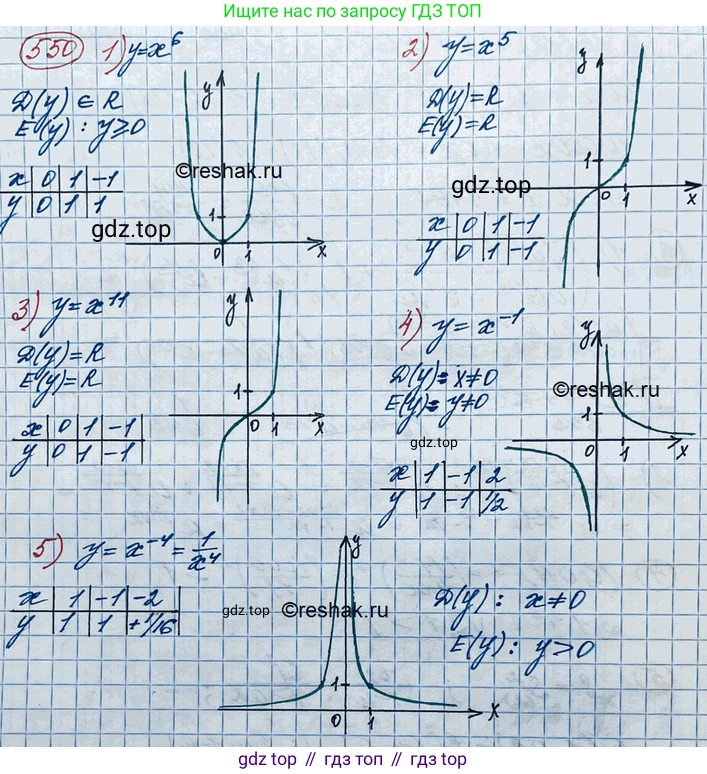 Ищите нас по запросу ГДЗ ТОП
550
1) y=x⁶
D(y) ∈ R
E(y) : y≥0
x | 0 | 1 | -1
y | 0 | 1 | 1
y
1
0 1 x
2) y=x⁵
D(y)=R
E(y)=R
x | 0 | 1 | -1
y | 0 | 1 | -1
y
1
0 1 x
©reshak.ru
gdz.top
gdz.top
3) y=x¹¹
D(y)=R
E(y)=R
x | 0 | 1 | -1
y | 0 | 1 | -1
y
1
0 1 x
4) y=x⁻¹
D(y)= x≠0
E(y)= y≠0
x | 1 | -1 | 2
y | 1 | -1 | 1/2
y
1
0 1 x
©reshak.ru
gdz.top
5) y=x⁻⁴=1/x⁴
x | 1 | -1 | -2
y | 1 | 1 | +1/16
y
1
0 1 x
gdz.top
©reshak.ru
D(y): x≠0
E(y): y>0
gdz.top // гдз.топ // gdz.top // гдз.топ